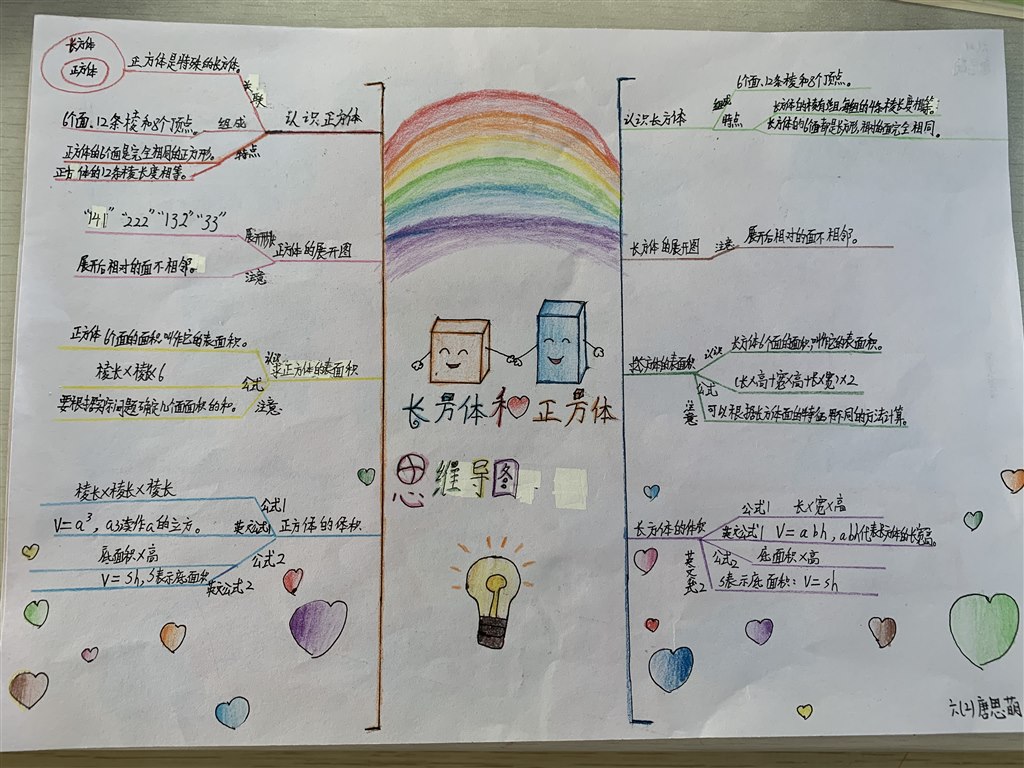 长方体
正方体
正方体是特殊的长方体。
关联
6个面、12条棱和8个顶点。
组成
认识正方体
正方体的6个面是完全相同的正方形。
特点
正方体的12条棱长度相等。
"141" "222" "132" "33"
展开图
正方体的展开图
展开后相对的面不相邻。
注意
正方体6个面的面积叫作它的表面积。
认识
正方体的表面积
棱长×棱长×6
公式
要根据实际问题确定几个面面积的和。
注意
棱长×棱长×棱长
公式1
V=a³,a3读作a的立方。
英文公式1
正方体的体积
底面积×高
公式2
V=sh,S表示底面积
英文公式2
长方体和正方体
思维导图
6个面、12条棱和8个顶点。
组成
认识长方体
特点
长方体的6个面都是长方形,相对的面完全相同。
长方体的展开图
注意
展开后相对的面不相邻。
长方体6个面的面积,叫作它的表面积。
认识
长方体的表面积
公式
注意
可以根据长方体面的特征用不同的方法计算。
公式1
长×宽×高
长方体的体积
英文公式1
V=abh,abh代表长方体的长宽高。
公式2
底面积×高
英文公式2
S表示底面积:V=sh
六(2)唐思萌